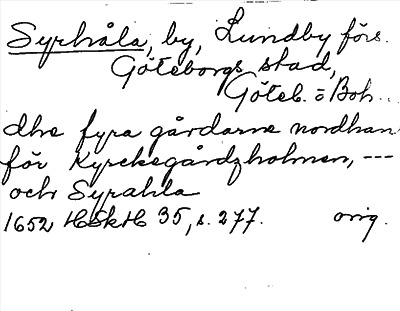 Syrhåla, by, Lundby förs.
Göteborgs stad,
Göteb. o Boh...
dhe fyra gårdarne nordhan
för Kyrckegårdzholmen, ---
och Syrahla
1652 HSkH 35, s. 277. orig.